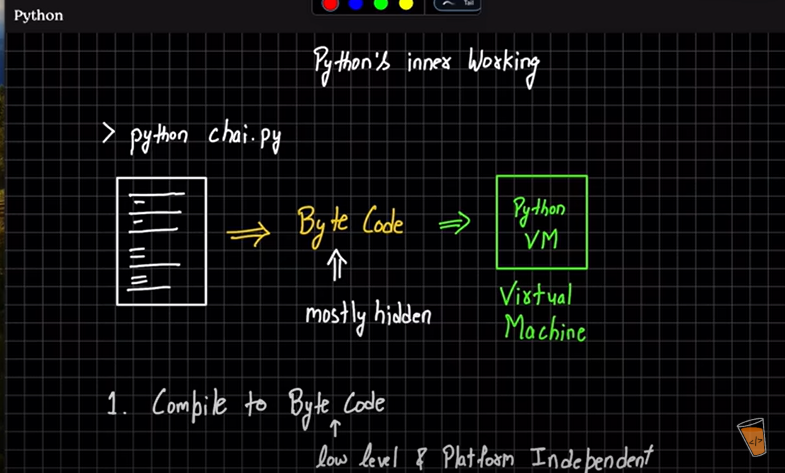 Python
Tail
Python's inner Working
> python chai.py
Byte Code
Python
VM
mostly hidden
Virtual
Machine
1. Compile to Byte Code
low level & Platform Independent
</>